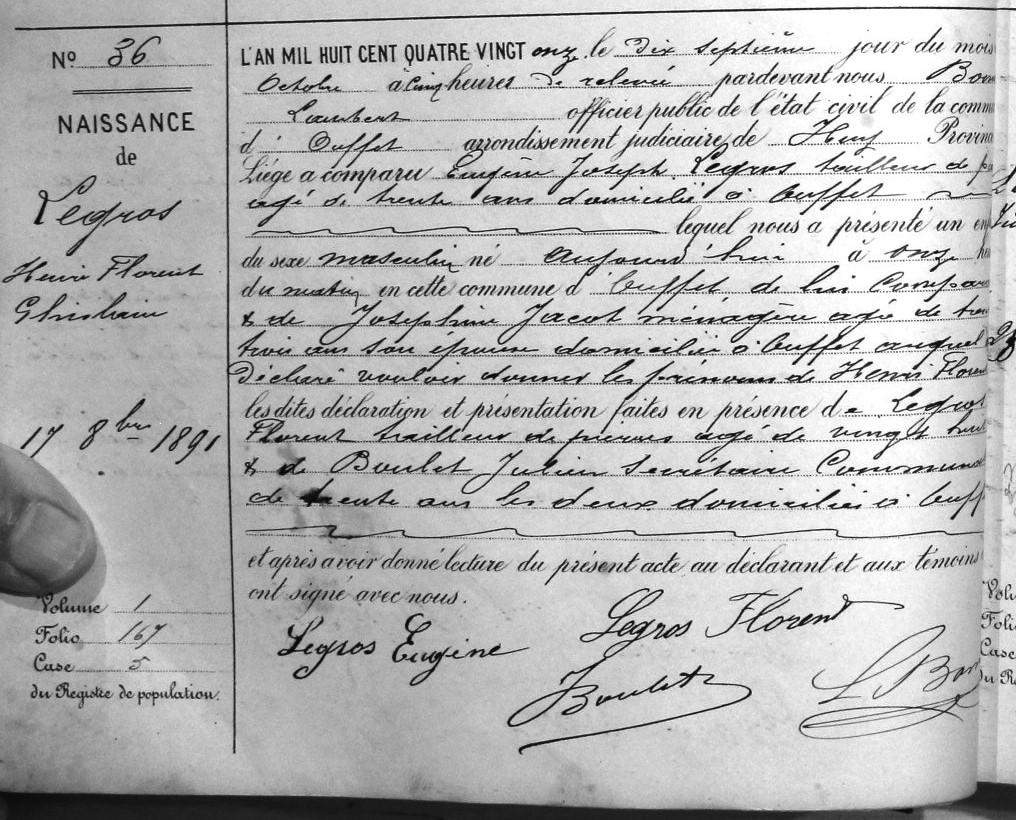 No 36
NAISSANCE
de
Legros
Henri Florent
Ghislain
17 8bre 1891
Volume 1
Folio 167
Case 5
du Registre de population.
L'AN MIL HUIT CENT QUATRE VINGT onze, le dix septième jour du mois
Octobre à cinq heures de relevée pardevant nous
Lambert officier public de l'état civil de la comm
d' Ouffet arrondissement judiciaire de Huy Provin
Liége a comparu Eugène Joseph Legros tailleur de
agé de trente ans domicilié à Ouffet
lequel nous a présenté un en
du sexe masculin né aujourd'hui à onze
du matin en cette commune d' Ouffet de lui compar
& de Joséphine Jacot ménagère agée de
trois ans son épouse domiciliée à Ouffet auquel
déclaré vouloir donner les prénoms de Henri Floren
les dites déclaration et présentation faites en présence de Legros
Florent tailleur de pierres agé de vingt huit
& de Boulet Julien Secrétaire Communal
de trente ans les deux domiciliés à Ouff
et après avoir donné lecture du présent acte au déclarant et aux témoins
ont signé avec nous.
Legros Eugène
Legros Florent
J Boulet
L Bov
Volu
Folio
Case
du R